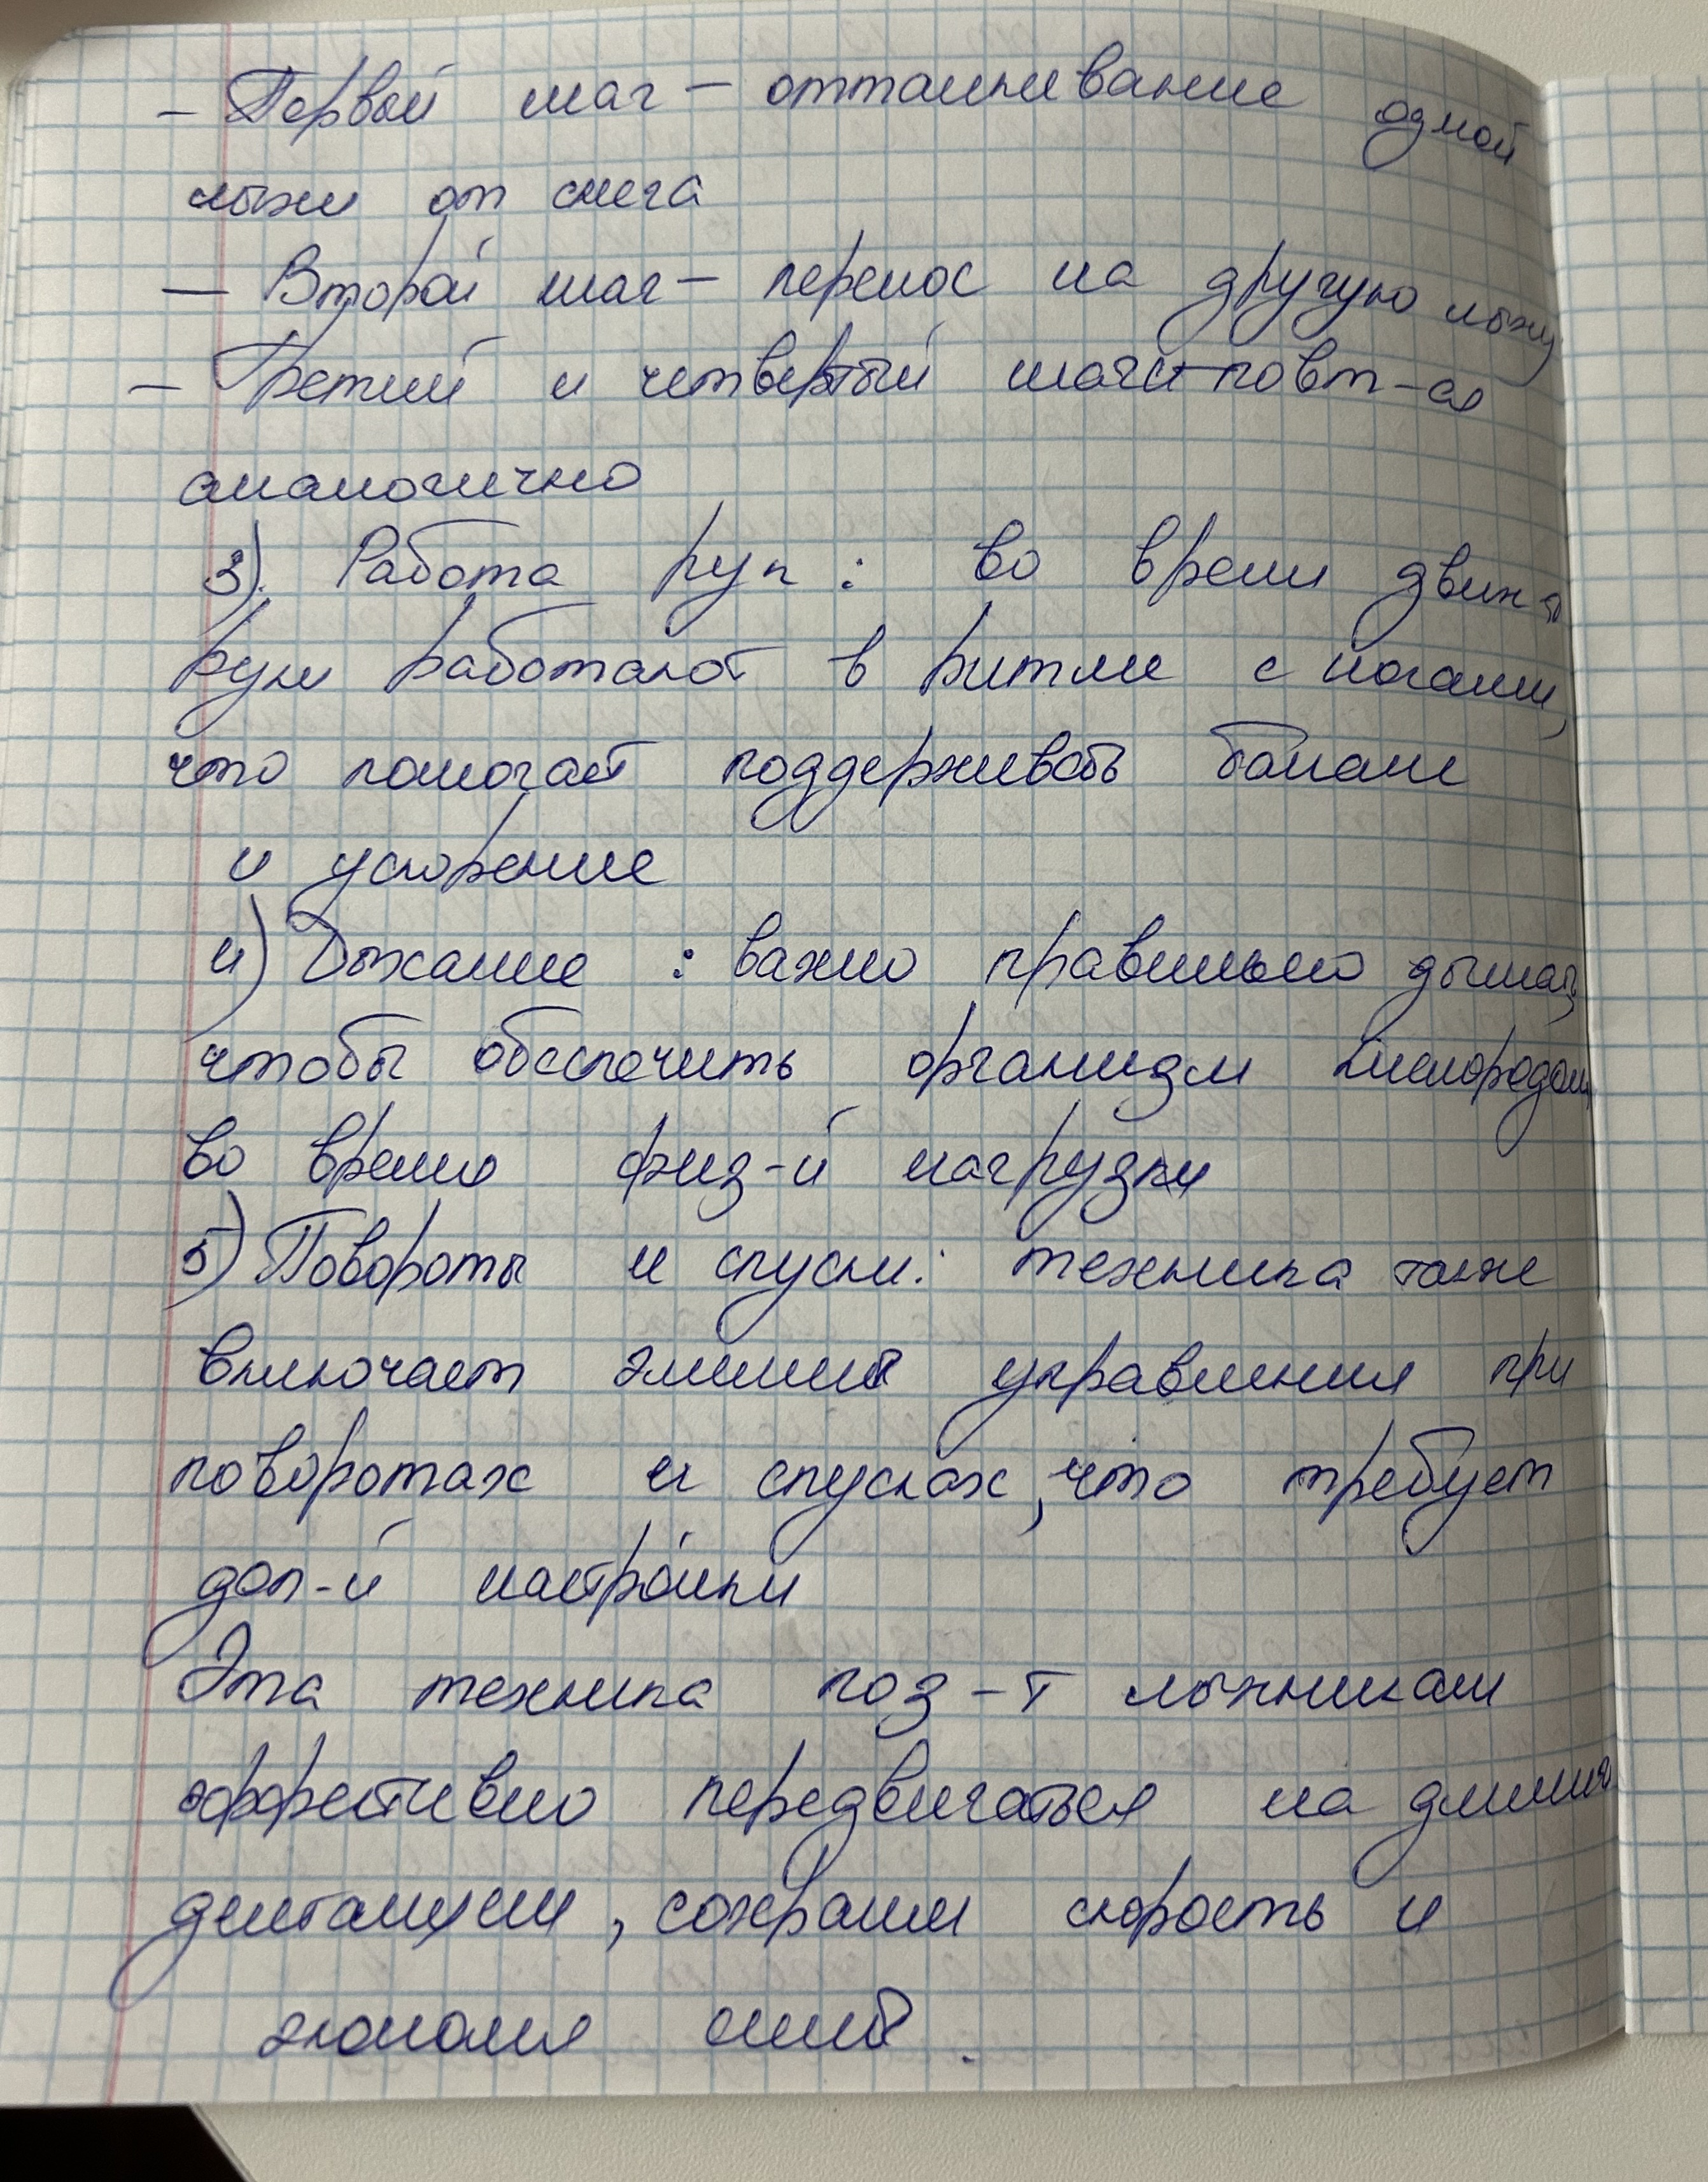 - Первый шаг - отталкивание одной
лыжи от снега
- Второй шаг - перенос на другую лыжу
- Третий и четвертый шаги - повт-ся
аналогично
3). Работа рук: во время движ-я
руки работают в ритме с ногами,
что помогает поддерживать баланс
и ускорение
4) Дыхание : важно правильно дышать,
чтобы обеспечить организм кислородом
во время физ-й нагрузки
5) Повороты и спуски: техника также
включает элементы управления при
поворотах и спусках, что требует
доп-й настройки
Эта техника поз-т лыжникам
эффективно передвигаться на длинные
дистанции, сохраняя скорость и
экономя силы.